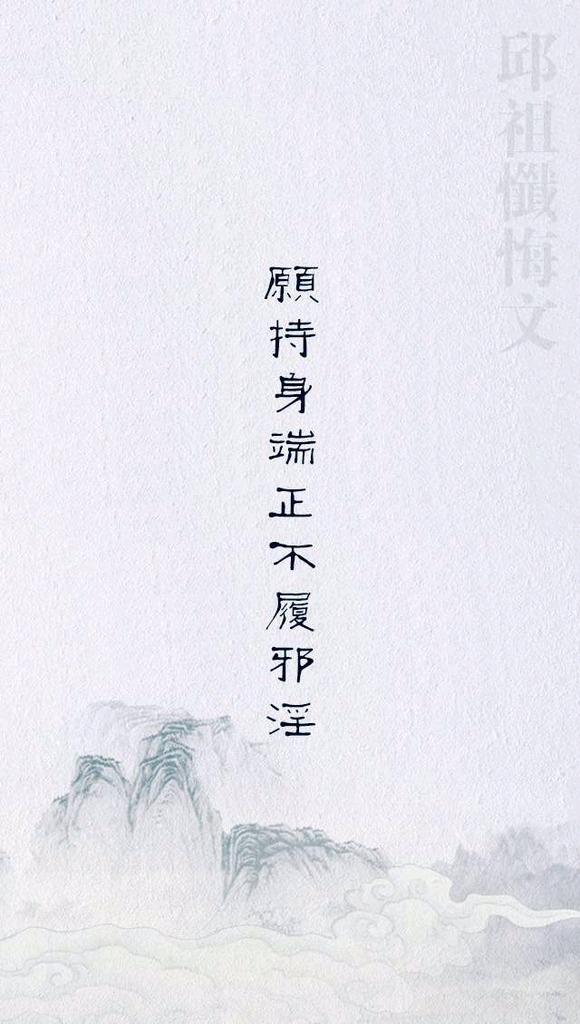 邱祖懺悔文
願持身端正不履邪淫